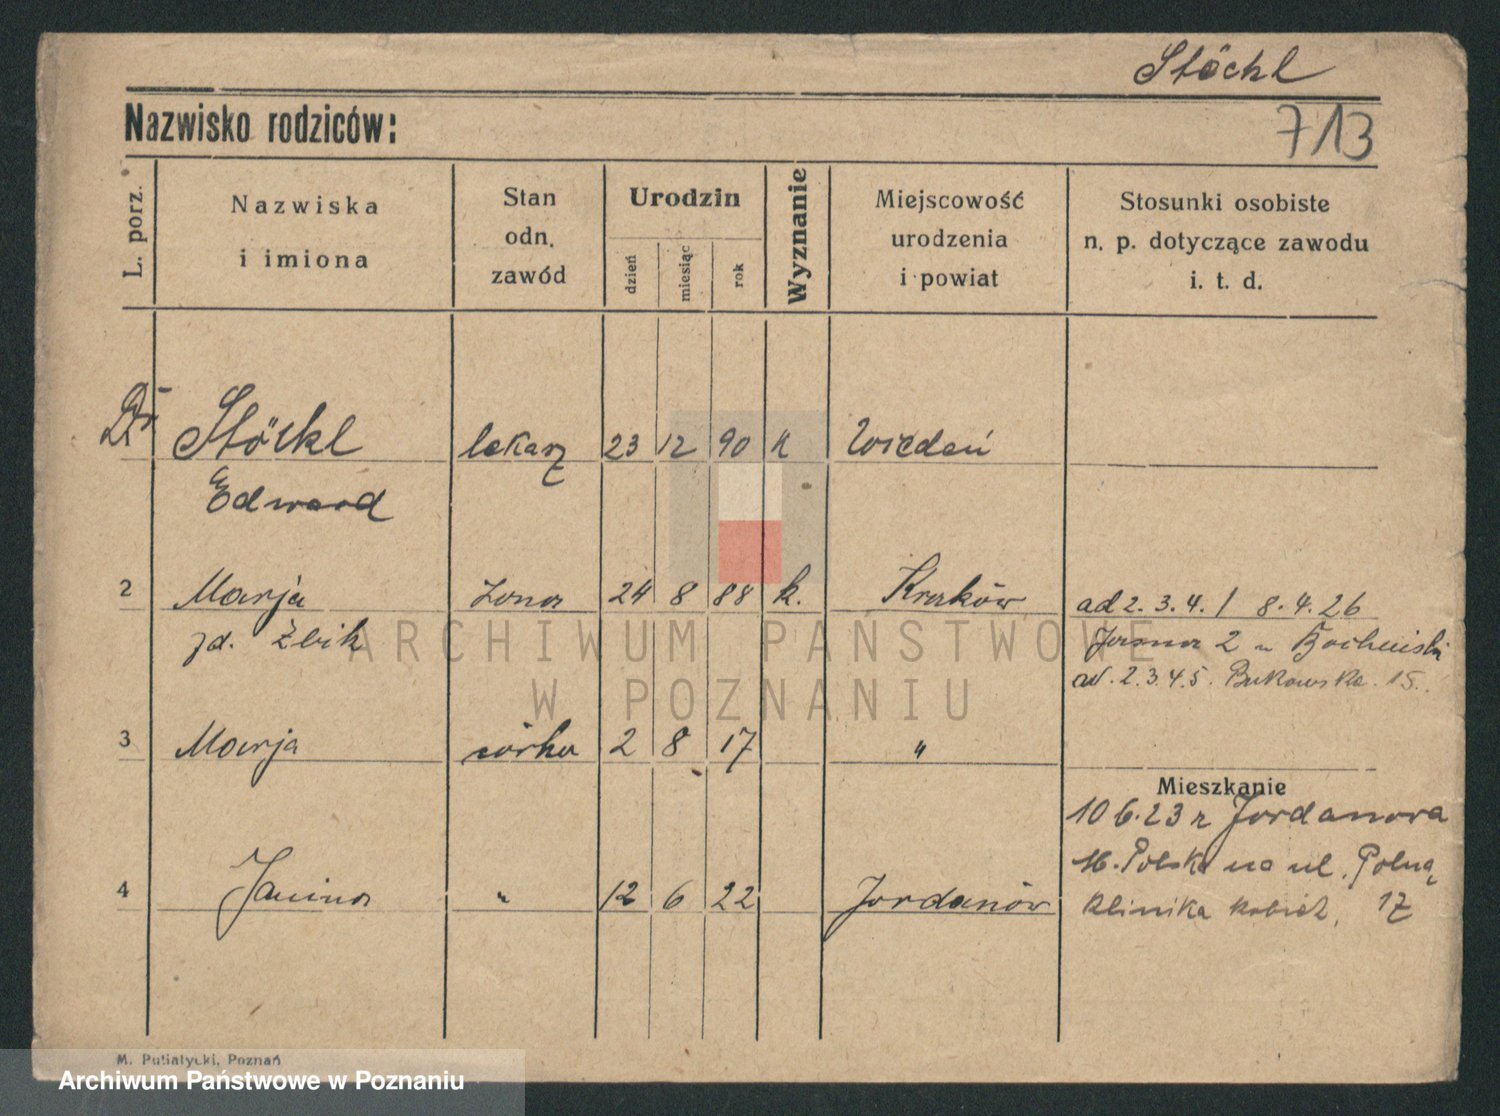 Stöckl
Nazwisko rodziców:
713
L. porz.
Nazwiska
i imiona
Stan
odn.
zawód
Urodzin
dzień
miesiąc
rok
Wyznanie
Miejscowość
urodzenia
i powiat
Stosunki osobiste
n. p. dotyczące zawodu
i. t. d.
Dr Stöckl lekarz 23 12 90 k Wiedeń
Edward
2 Marja żona 24 8 88 k. Kraków
zd. Żbik
ad 2. 3. 4. / 8. 4. 26
Jasna 2 u Bocheński
ad. 2. 3. 4. 5. Bukowska 15.
3 Marja córka 2 8 17 "
Mieszkanie
10 6. 23 z Jordanowa
Polska na ul. Polną
Klinika kobiet, 17
4 Janina " 12 6 22 Jordanów
ARCHIWUM PAŃSTWOWE
W POZNANIU
M. Putiatycki, Poznań
Archiwum Państwowe w Poznaniu